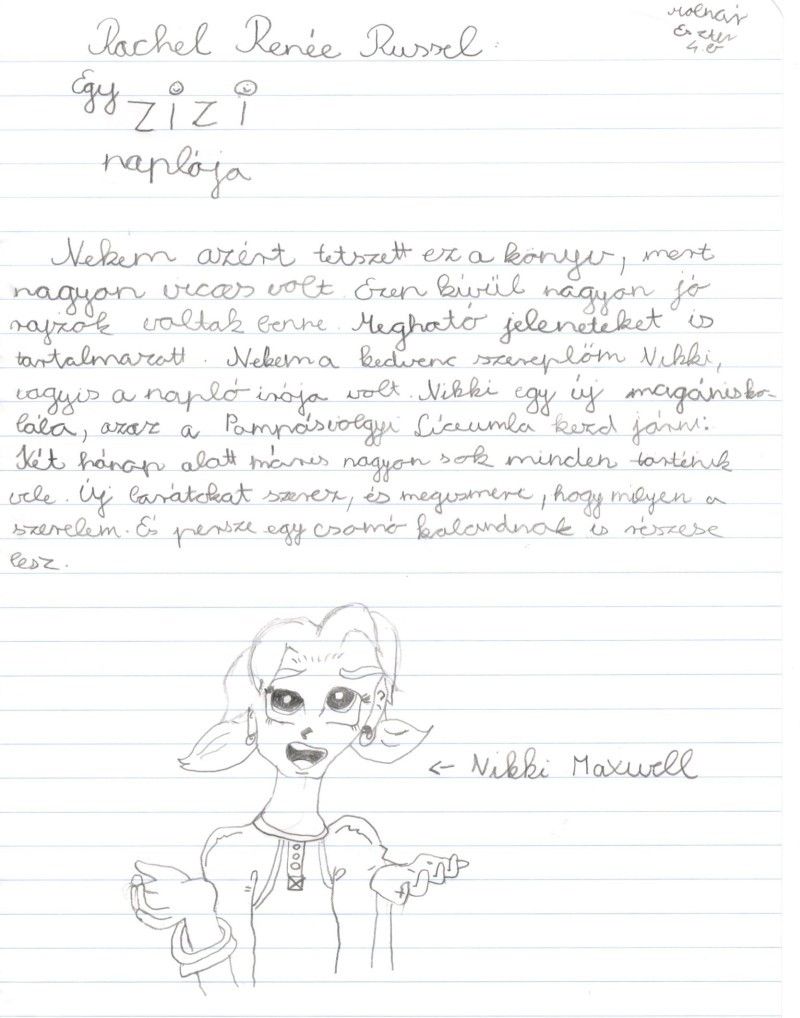 Molnár
Eszter
4. b
Rachel Renée Russel:
Egy ZIZI
naplója
Nekem azért tetszett ez a könyv, mert
nagyon vicces volt. Ezen kívül nagyon jó
rajzok voltak benne. Megható jeleneteket is
tartalmazott. Nekem a kedvenc szereplőm Nikki,
vagyis a napló írója volt. Nikki egy új magánisko-
lába, azaz a Pampásvölgyi Líceumba kezd járni.
Két hónap alatt máris nagyon sok minden történik
vele. Új barátokat szerez, és megismeri, hogy milyen a
szerelem. És persze egy csomó kalandnak is részese
lesz.
← Nikki Maxwell